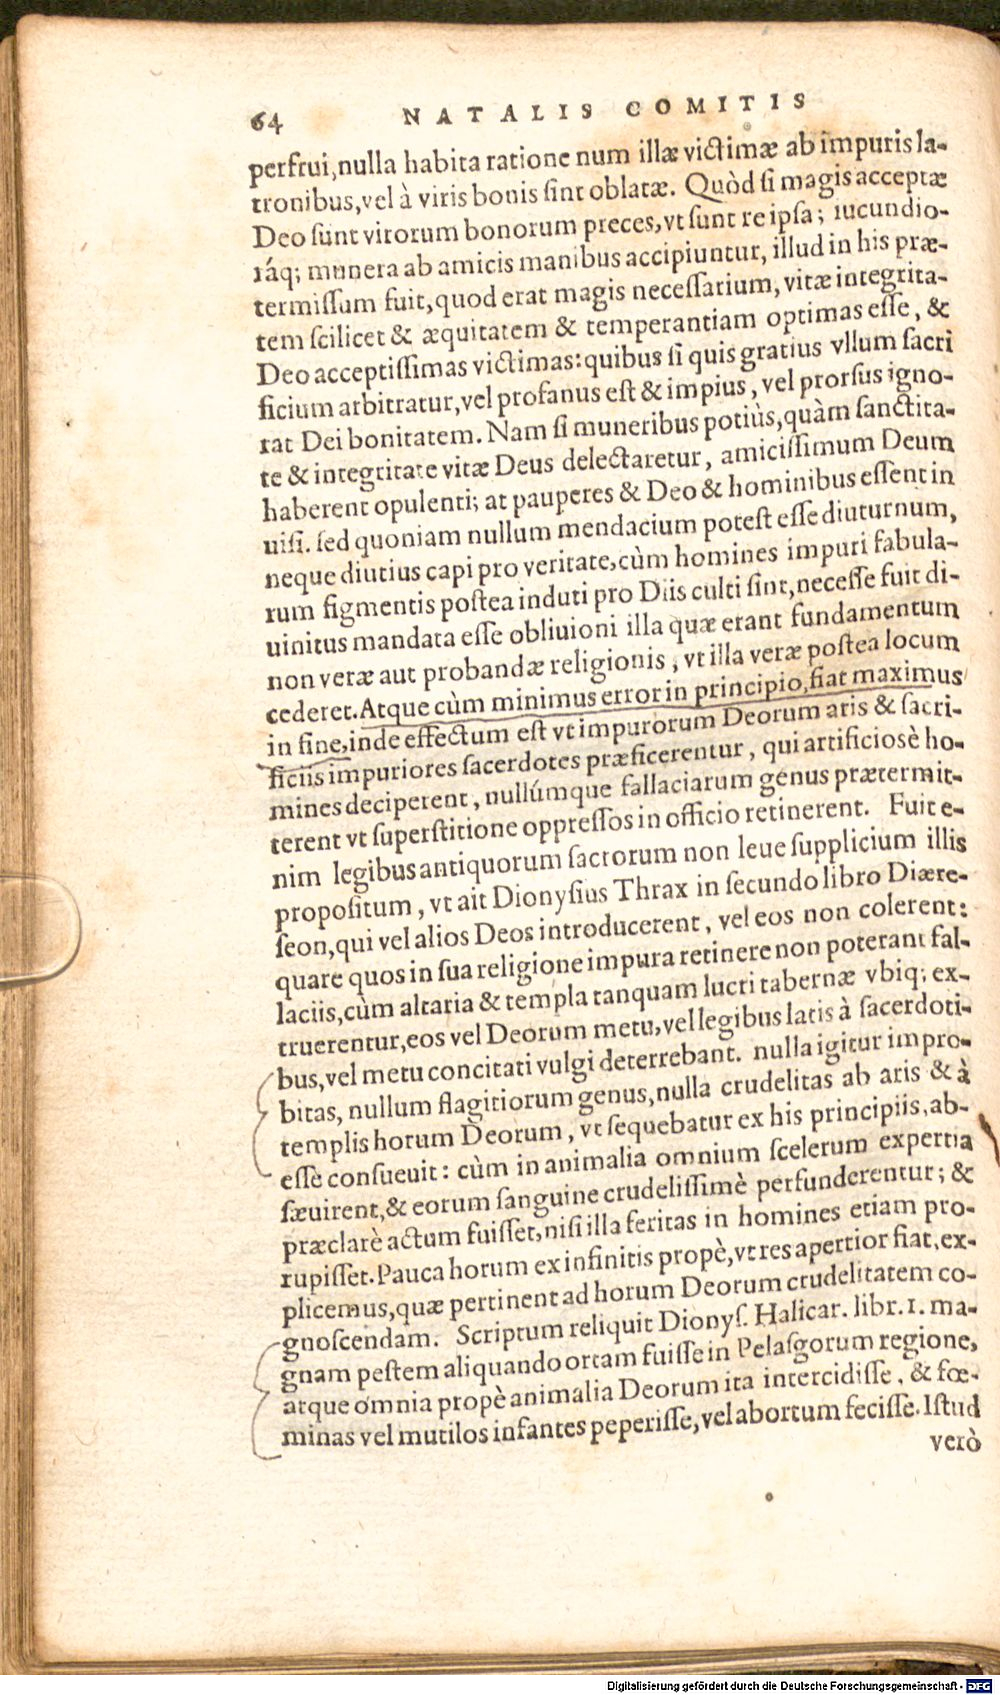 64 NATALIS COMITIS
perfrui, nulla habita ratione num illæ victimæ ab impuris la-
tronibus, vel à viris bonis ſint oblatæ. Quòd ſi magis acceptæ
Deo ſunt virorum bonorum preces, vt ſunt re ipſa; iucundio-
ráq; munera ab amicis manibus accipiuntur, illud in his præ-
termiſſum fuit, quod erat magis neceſſarium, vitæ integrita-
tem ſcilicet & æquitatem & temperantiam optimas eſſe, &
Deo acceptiſſimas victimas: quibus ſi quis gratius vllum ſacri
ficium arbitratur, vel profanus eſt & impius, vel prorſus igno-
rat Dei bonitatem. Nam ſi muneribus potiùs, quàm ſanctita-
te & integritate vitæ Deus delectaretur, amiciſſimum Deum
haberent opulenti; at pauperes & Deo & hominibus eſſent in
uiſi. ſed quoniam nullum mendacium poteſt eſſe diuturnum,
neque diutius capi pro veritate, cùm homines impuri fabula-
rum figmentis poſtea induti pro Diis culti ſint, neceſſe fuit di-
uinitus mandata eſſe obliuioni illa quæ erant fundamentum
non veræ aut probandæ religionis, vt illa veræ poſtea locum
cederet. Atque cùm minimus error in principio, fiat maximus
in fine, inde effectum eſt vt impurorum Deorum aris & ſacri-
ficiis impuriores ſacerdotes præficerentur, qui artificiosè ho-
mines deciperent, nullúmque fallaciarum genus prætermit-
terent vt ſuperſtitione oppreſſos in officio retinerent. Fuit e-
nim legibus antiquorum ſacrorum non leue ſupplicium illis
propoſitum, vt ait Dionyſius Thrax in ſecundo libro Diære-
ſeon, qui vel alios Deos introducerent, vel eos non colerent:
quare quos in ſua religione impura retinere non poterant fal-
laciis, cùm altaria & templa tanquam lucri tabernæ vbiq; ex-
truerentur, eos vel Deorum metu, vel legibus latis à ſacerdoti-
bus, vel metu concitati vulgi deterrebant. nulla igitur impro-
bitas, nullum flagitiorum genus, nulla crudelitas ab aris & à
templis horum Deorum, vt ſequebatur ex his principiis, ab-
eſſe conſueuit: cùm in animalia omnium ſcelerum expertia
ſæuirent, & eorum ſanguine crudeliſſimè perfunderentur; &
præclarè actum fuiſſet, niſi illa feritas in homines etiam pro-
rupiſſet. Pauca horum ex infinitis propè, vt res apertior fiat, ex-
plicemus, quæ pertinent ad horum Deorum crudelitatem co-
gnoſcendam. Scriptum reliquit Dionyſ. Halicar. libr. 1. ma-
gnam peſtem aliquando ortam fuiſſe in Pelaſgorum regione,
atque omnia propè animalia Deorum ira intercidiſſe, & fœ-
minas vel mutilos infantes peperiſſe, vel abortum feciſſe. Iſtud
verò
Digitalisierung gefördert durch die Deutsche Forschungsgemeinschaft - DFG